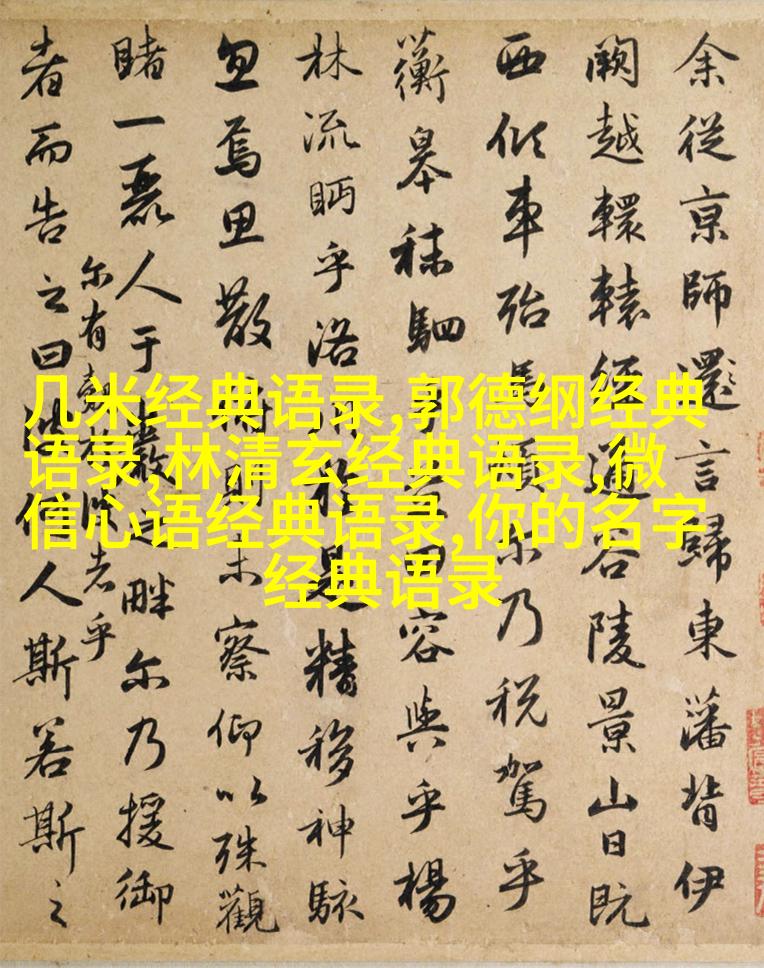 几米经典语录,郭德纲经典
语录,林清玄经典语录,微
信心语经典语录,你的名字
经典语录
余從京師還言歸東藩背伊
闕越轘轅經通谷陵景山日既
西傾車殆馬煩尔乃税駕乎
蘅皋秣駟乎芝田容與乎楊
林流眄乎洛川於是精移神駭
忽焉思散俯則未察仰以殊觀
睹一麗人于巖之畔尔乃援御
尔有覿於彼者乎
者而告之曰彼何人斯若斯之